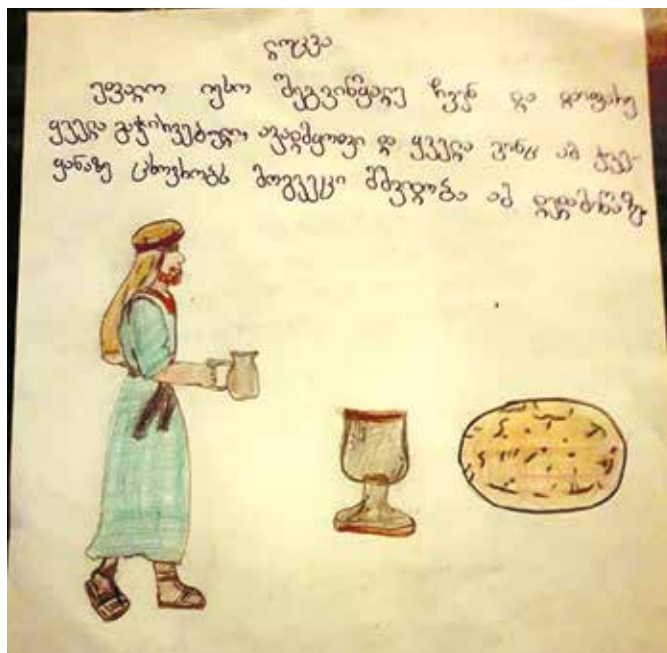 ლოცვა
უფალო იესო შეგვიწყალე ჩვენ და დაიფარე
ყველა გაჭირვებული, ავადმყოფი და ყველა ვინც ამ ქვე-
ყანაზე ცხოვრობს მოგვეცი მშვიდობა ამ დედამიწაზე.